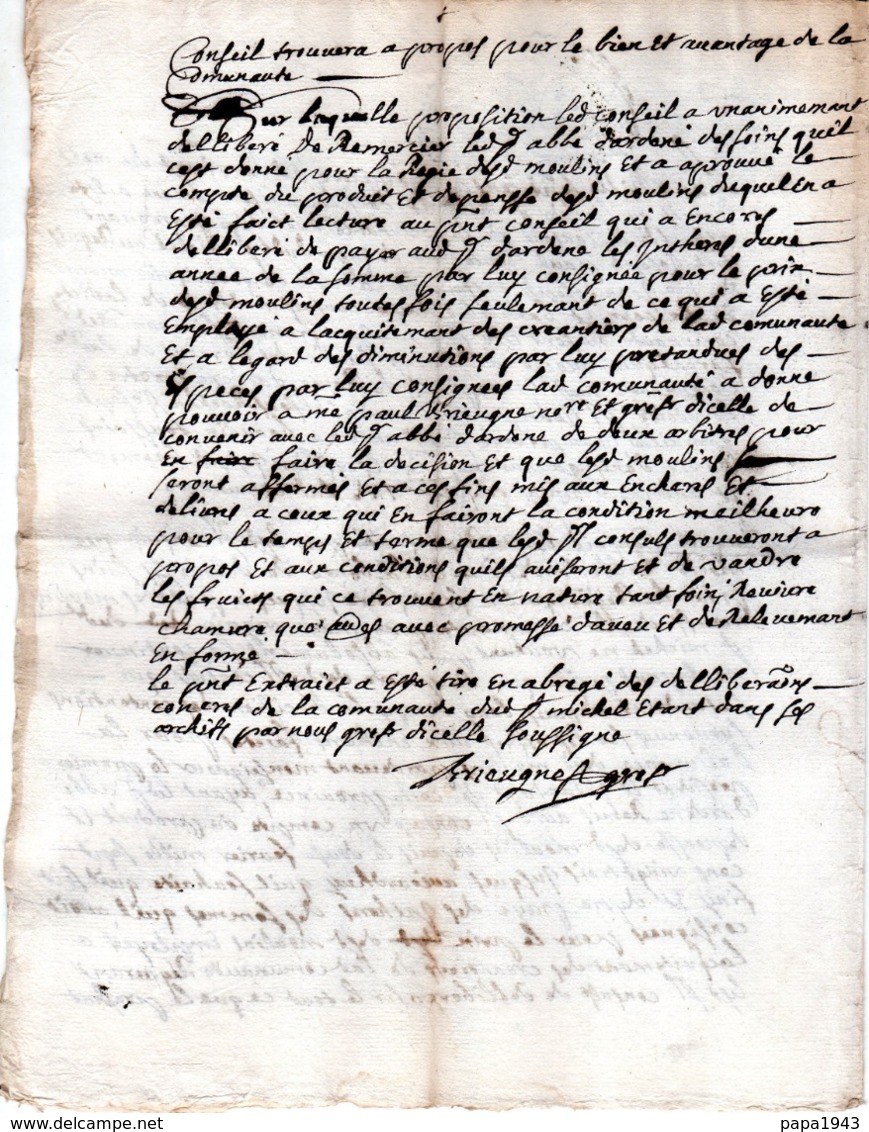 Conseil trouvera a propos pour le bien et avantage de la
Comunaute
Sur laquelle proposition led conseil a vnanimemant
delliberé de Remercier led Sr abbé dardene des soins quil
cest donné pour la Regie desd moulins et a aprouué le
compte du produit et depansse desd moulins duquel en a
esté faict lecture au pnt conseil qui a encores
delliberé de payer aud Sr dardene les Intherets dune
année de la somme par luy consignée pour le prix
desd moulins toutesfois seulemant de ce qui a esté
employé a lacquitemant des creantiers de lad comunaute
Et a legard des diminutions par luy pretandues des
Especes par luy consignees lad comunauté a donné
pouvoir a me paul Brieugne nore et greffr dicelle de
convenir avec led Sr abbé dardene de deux arbitres pour
en faire faire la decision et que lesd moulins
seront affermés et a ces fins mis aux encheres et
deliures a ceux qui en fairont la condition meilheure
pour le temps et terme que lesd Srs consuls trouveront a
propos et aux conditions quils auiseront et de vandre
les fruicts qui ce trouvent en nature tant foin,
chamvre que avec promesse daveu et de Relevemant
en forme
le pnt Extraict a esté tiré en abregé des delliberaons
de la comunaute dud St michel Estant dans ses
archifs par nous greffr dicelle soussigne
Brieugne greffr
papa1943